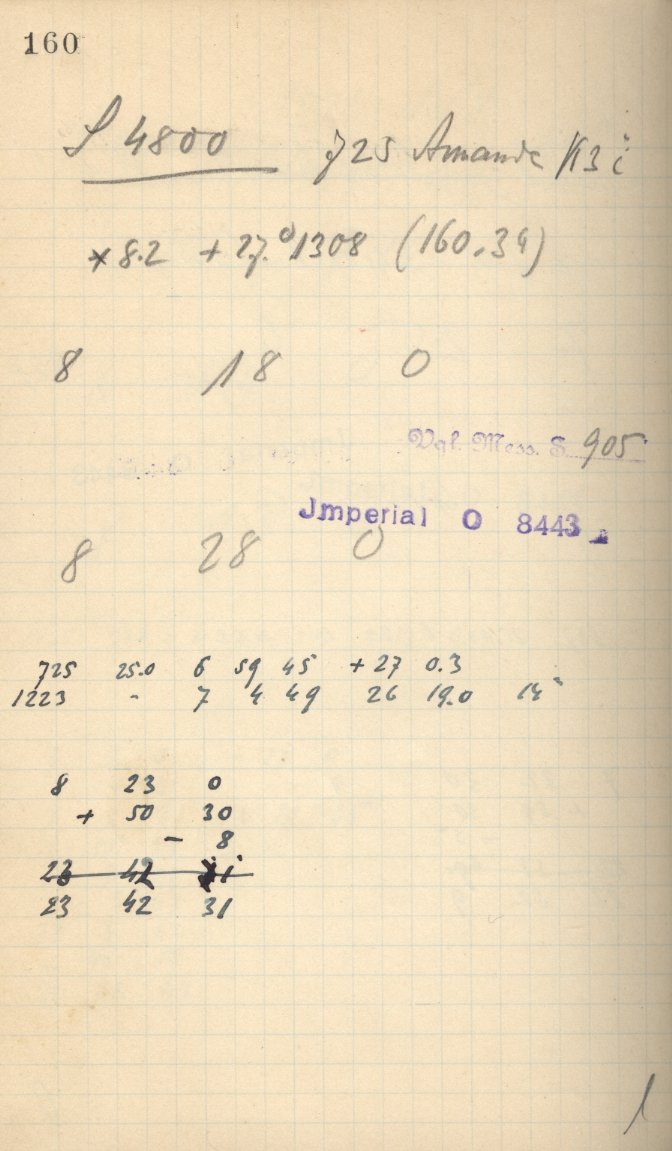 160
S 4800 725 Amanda
*8.2 +27.°1308 (160.34)
8 18 0
Vgl. Mess. S. 905
Jmperial O 8443
8 28 0
725 25.0 6 59 45 +27 0.3
1223 - 7 4 49 26 19.0 14
8 23 0
+ 50 30
- 8
23 42
23 42 31